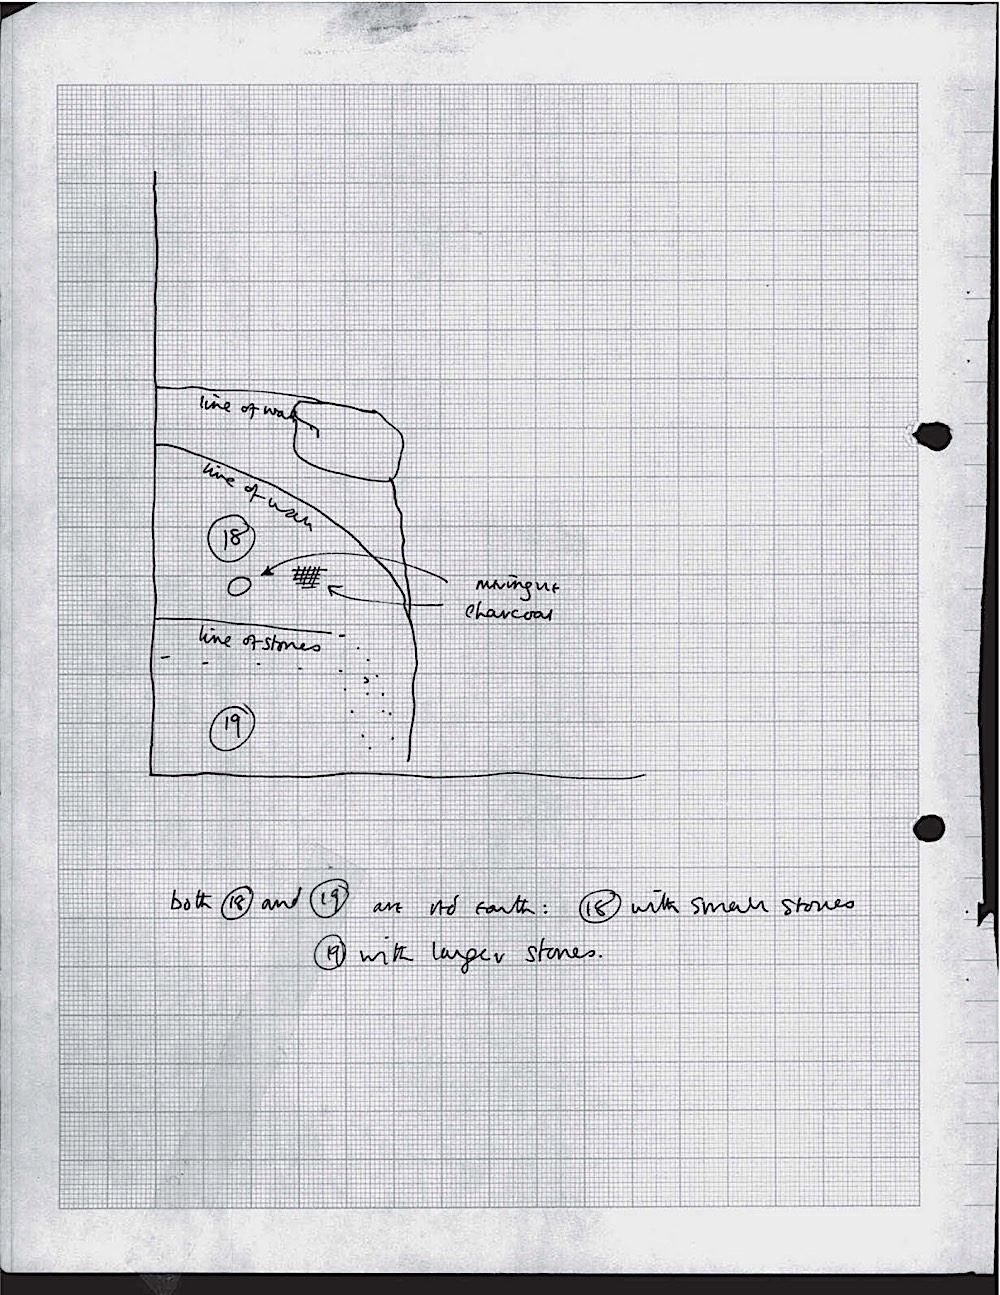 line of wall
line of wall
18
meringue
charcoal
line of stones
19
both 18 and 19 are red earth: 18 with small stones
19 with larger stones.